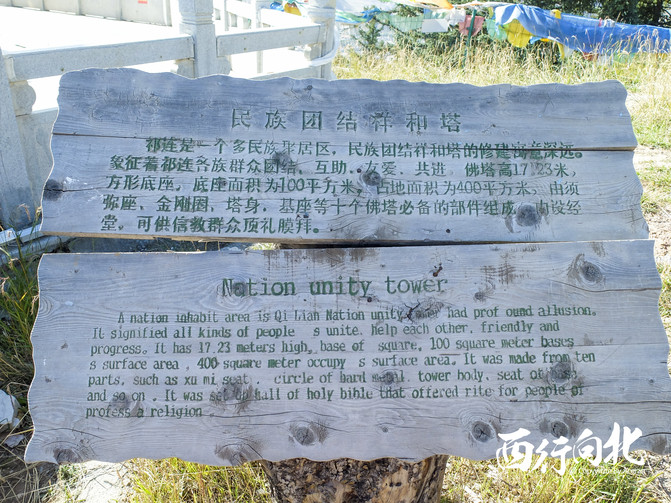 民族团结祥和塔
祁连是一个多民族聚居区，民族团结祥和塔的修建寓意深远。
象征着祁连各族群众团结、互助、友爱、共进。佛塔高17.23米，
方形底座，底座面积为100平方米，占地面积为400平方米。由须
弥座、金刚圈、塔身、基座等十个佛塔必备的部件组成。内设经
堂，可供信教群众顶礼膜拜。
Nation unity tower
A nation inhabit area is Qi Lian Nation unity tower had prof ound allusion.
It signified all kinds of people s unite. help each other, friendly and
progress. It has 17.23 meters high, base of square, 100 square meter bases
s surface area , 400 square meter occupy s surface area. It was made from ten
parts, such as xu mi seat , circle of hard metal. tower body, seat of base
and so on . It was set up hall of holy bible that offered rite for people of
profess a religion
西行向北